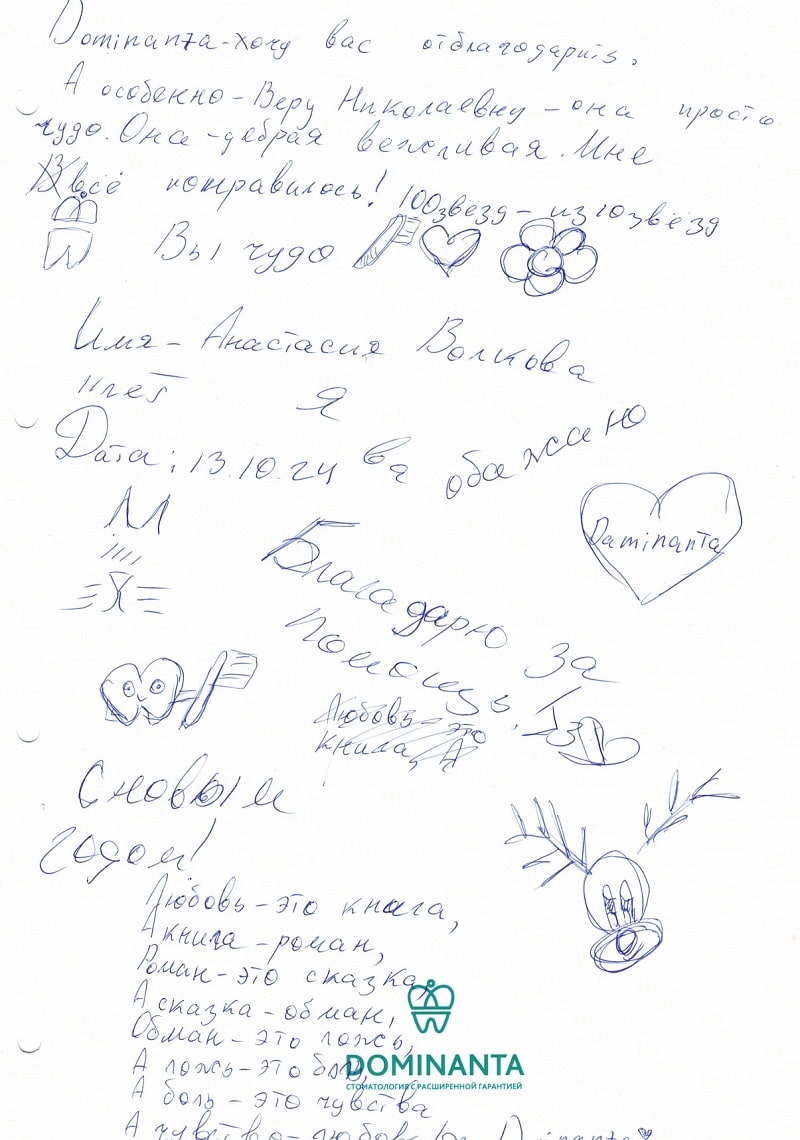 Dominanta-хочу вас отблагодарить.
А особенно-Веру Николаевну-она просто
чудо. Она-дебрая вежливая. Мне
всё понравилось! 100звёзд-из10звёзд
Вы чудо
Имя-Анастасия Волкова
11лет Я
Дата: 13.10.24 ва обажаю
Daminanta
Благадарю за
помощь!
Любовь-это
книга, А
С новым
годом!
Любовь-это книга,
А книга-роман,
Роман-это сказка,
А сказка-обман,
Обман-это ложь,
А ложь-это боль,
А боль-это чувства
А чувство-любовь
DOMINANTA
СТОМАТОЛОГИЯ С РАСШИРЕННОЙ ГАРАНТИЕЙ